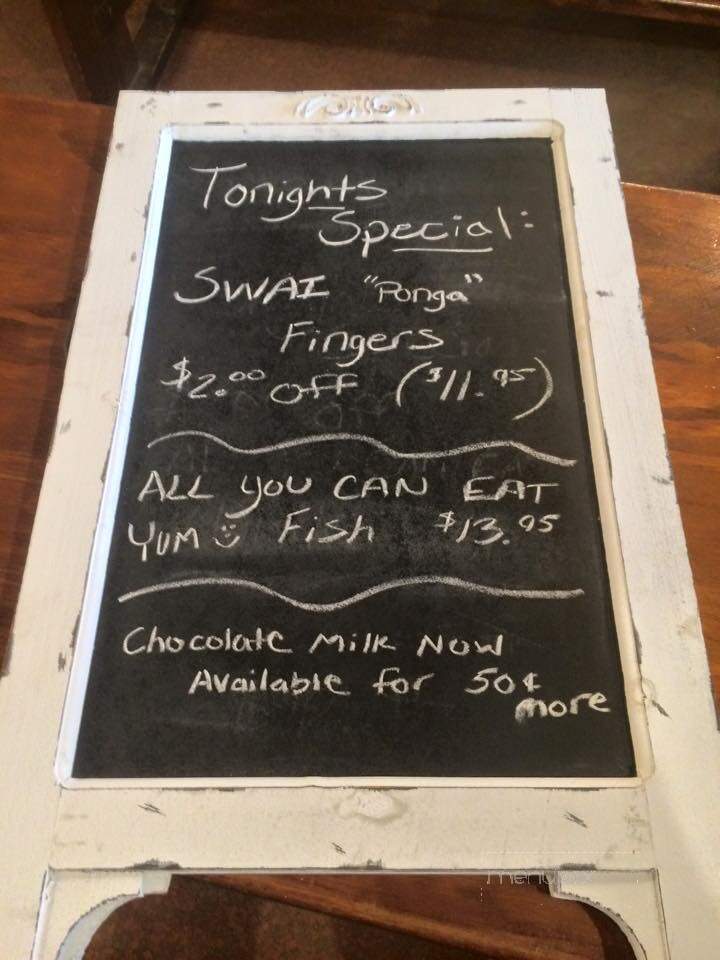 Tonights
Special:
SWAI "Ponga"
Fingers
$2.00 off ($11.95)
ALL YOU CAN EAT
YUM Fish $13.95
Chocolate Milk Now
Available for 50¢
more